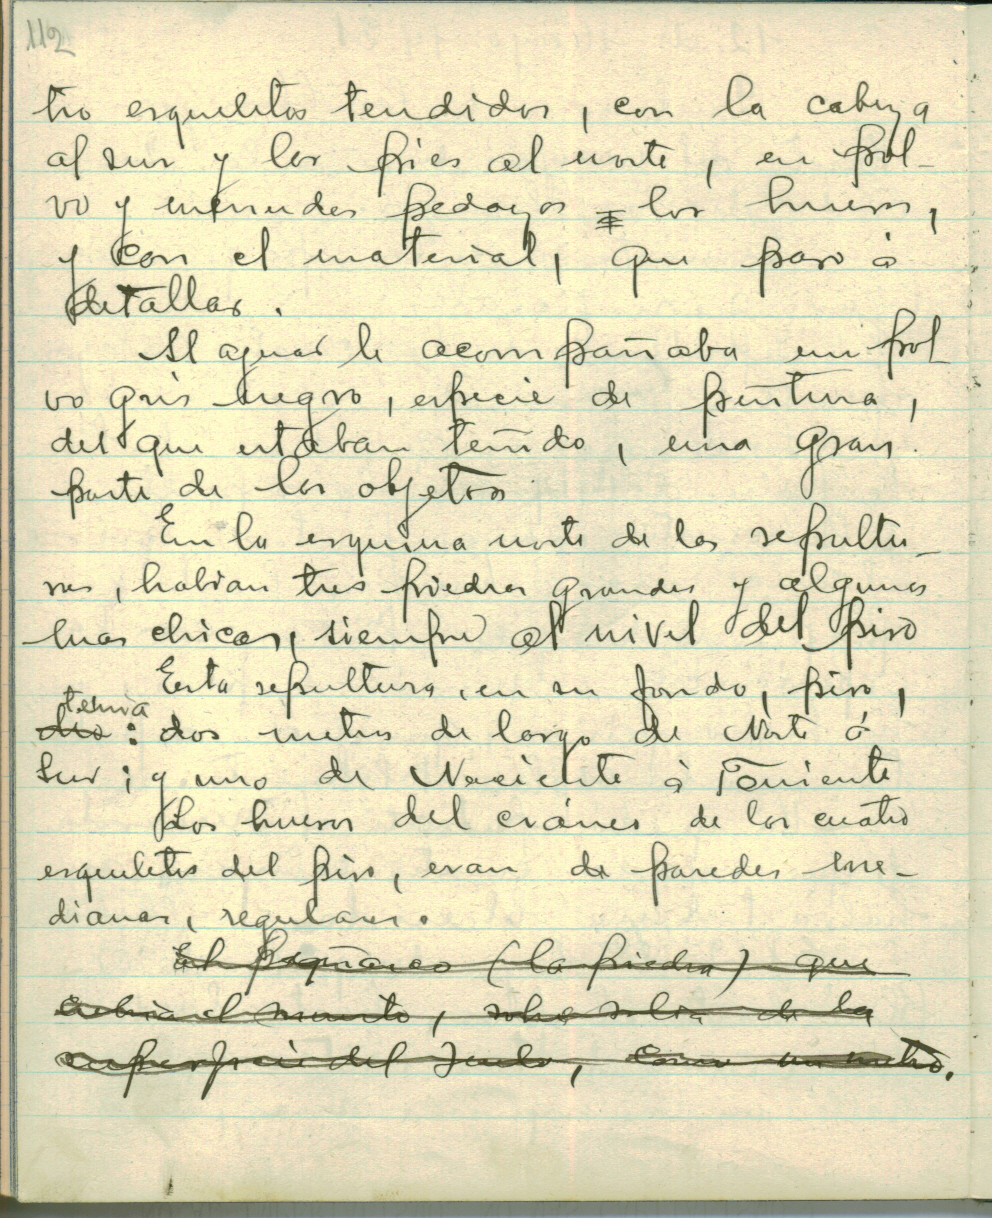 112
tro esqueletos tendidos, con la cabeza
al sur y los pies al norte, en pol-
vo y menudos pedazos los huesos,
y con el material, que paso á
detallar.
Al ajuar le acompañaba un pol
vo gris negro, especie de pintura,
del que estaban teñido, una gran
parte de los objetos
En la esquina norte de las sepultu-
ras, habian tres piedras grandes y algunas
mas chicas, siempre al nivel del piso
Esta sepultura, en su fondo, piso,
tenia
dio : dos metros de largo de Norte á
Sur; y uno de Naciente á Poniente
Los huesos del cráneo de los cuatro
esqueletos del piso, eran de paredes me-
dianas, regulares.
El Peñasco (la piedra) que
cubria el muerto, sobre salia de la
superficie del suelo, como un metro.